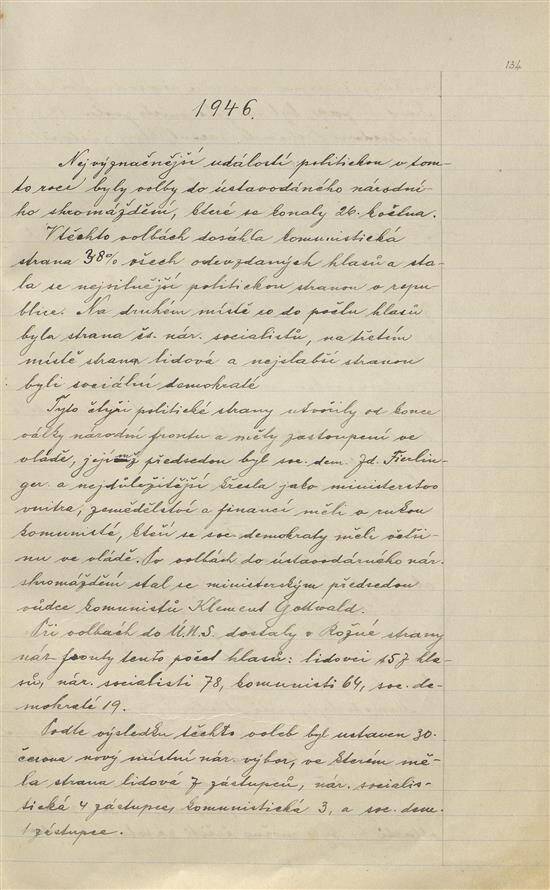 134
1946.
Nejvýznačnější událostí politickou v tom-
to roce byly volby do ústavodáného národní-
ho shromáždění, které se konaly 26. května.
V těchto volbách dosáhla komunistická
strana 38% všech odevzdaných hlasů a sta-
la se nejsilnější politickou stranou v repu-
blice. Na druhém místě co do počtu hlasů
byla strana čs. nár. socialistů, na třetím
místě strana lidová a nejslabší stranou
byli sociální demokraté
Tyto čtyři politické strany utvořily od konce
války národní frontu a měly zastoupení ve
vládě, jejímž předsedou byl soc. dem. Zd. Fierlin-
ger a nejdůležitější křesla jako ministerstvo
vnitra, zemědělství a financí měli v rukou
komunisté, kteří se soc. demokraty měli větši-
nu ve vládě. Po volbách do ústavodárného nár.
shromáždění stal se ministerským předsedou
vůdce komunistů Klement Gottwald.
Při volbách do Ú.N.S. dostaly v Rožné strany
nár. fronty tento počet hlasů: lidovci 157 hla-
sů, nár. socialisti 78, komunisti 64, soc. de-
mokraté 19.
Podle výsledku těchto voleb byl ustaven 30.
června nový místní nár. výbor, ve kterém mě-
la strana lidová 7 zástupců, nár. socialis-
tická 4 zástupce, komunistická 3, a soc. dem.
1 zástupce.